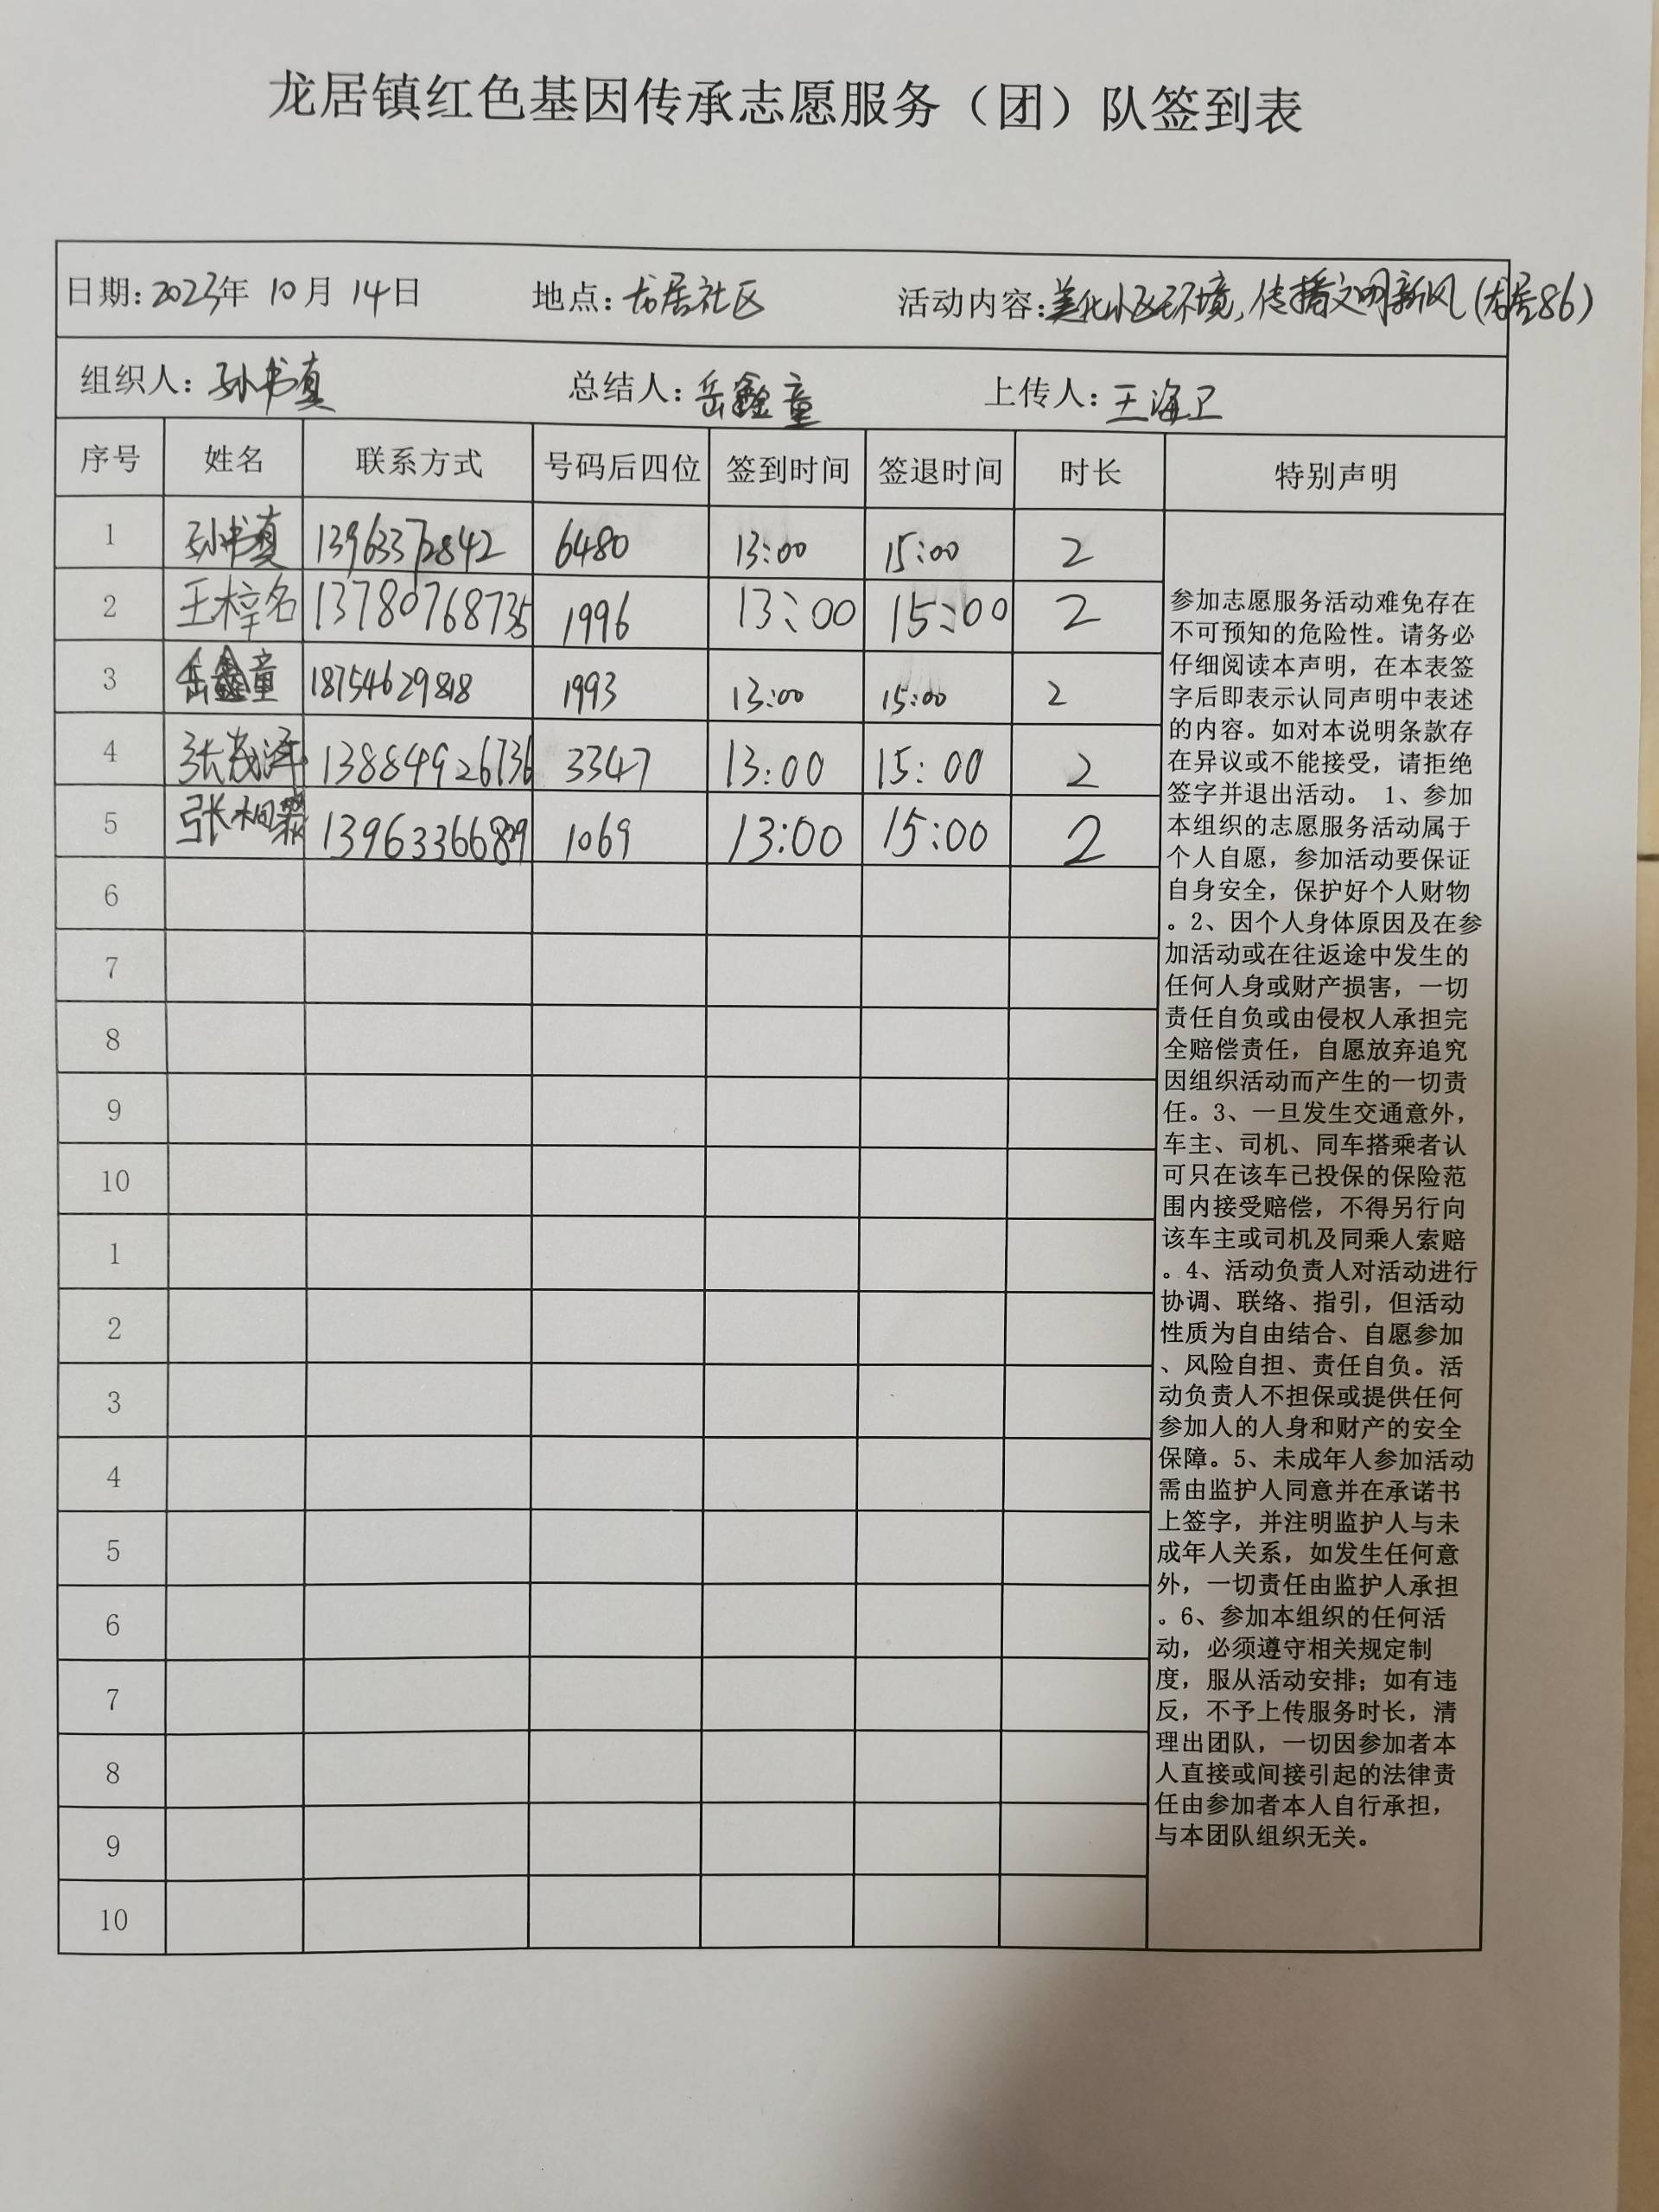 龙居镇红色基因传承志愿服务（团）队签到表
日期：2023年 10月 14日 地点：龙居社区 活动内容：美化小区环境，传播文明新风（龙居86）
组织人：孙书真 总结人：岳鑫童 上传人：王海卫
序号 姓名 联系方式 号码后四位 签到时间 签退时间 时长 特别声明
1 孙书真 13963372842 6480 13:00 15:00 2
2 王梓名 13780768735 1996 13:00 15:00 2
3 岳鑫童 18754629818 1993 13:00 15:00 2
4 张茂泽 13884926736 3347 13:00 15:00 2
5 张桐 13963366829 1069 13:00 15:00 2
6
7
8
9
10
1
2
3
4
5
6
7
8
9
10
参加志愿服务活动难免存在
不可预知的危险性。请务必
仔细阅读本声明，在本表签
字后即表示认同声明中表述
的内容。如对本说明条款存
在异议或不能接受，请拒绝
签字并退出活动。 1、参加
本组织的志愿服务活动属于
个人自愿，参加活动要保证
自身安全，保护好个人财物
。2、因个人身体原因及在参
加活动或在往返途中发生的
任何人身或财产损害，一切
责任自负或由侵权人承担完
全赔偿责任，自愿放弃追究
因组织活动而产生的一切责
任。3、一旦发生交通意外，
车主、司机、同车搭乘者认
可只在该车已投保的保险范
围内接受赔偿，不得另行向
该车主或司机及同乘人索赔
。4、活动负责人对活动进行
协调、联络、指引，但活动
性质为自由结合、自愿参加
、风险自担、责任自负。活
动负责人不担保或提供任何
参加人的人身和财产的安全
保障。5、未成年人参加活动
需由监护人同意并在承诺书
上签字，并注明监护人与未
成年人关系，如发生任何意
外，一切责任由监护人承担
。6、参加本组织的任何活
动，必须遵守相关规定制
度，服从活动安排；如有违
反，不予上传服务时长，清
理出团队，一切因参加者本
人直接或间接引起的法律责
任由参加者本人自行承担，
与本团队组织无关。